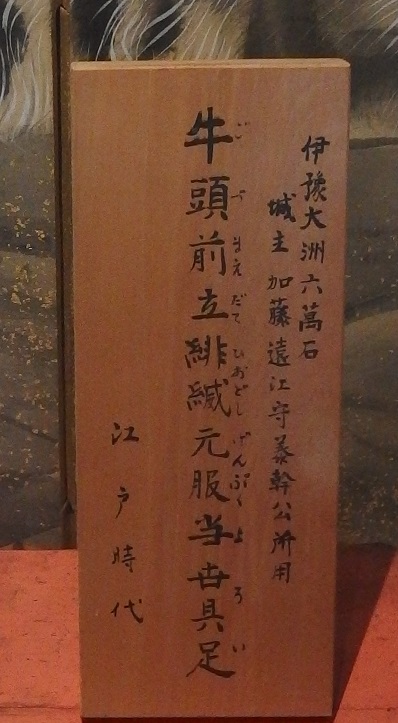 伊豫大洲六萬石
城主 加藤遠江守泰幹公所用
ごづまえだてひおどしげんぷくよろい
牛頭前立緋縅元服当世具足
江戸時代